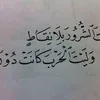 الشُّرورَ بلا نِقَاطٍ
وليتَ الحَربَ كانَت